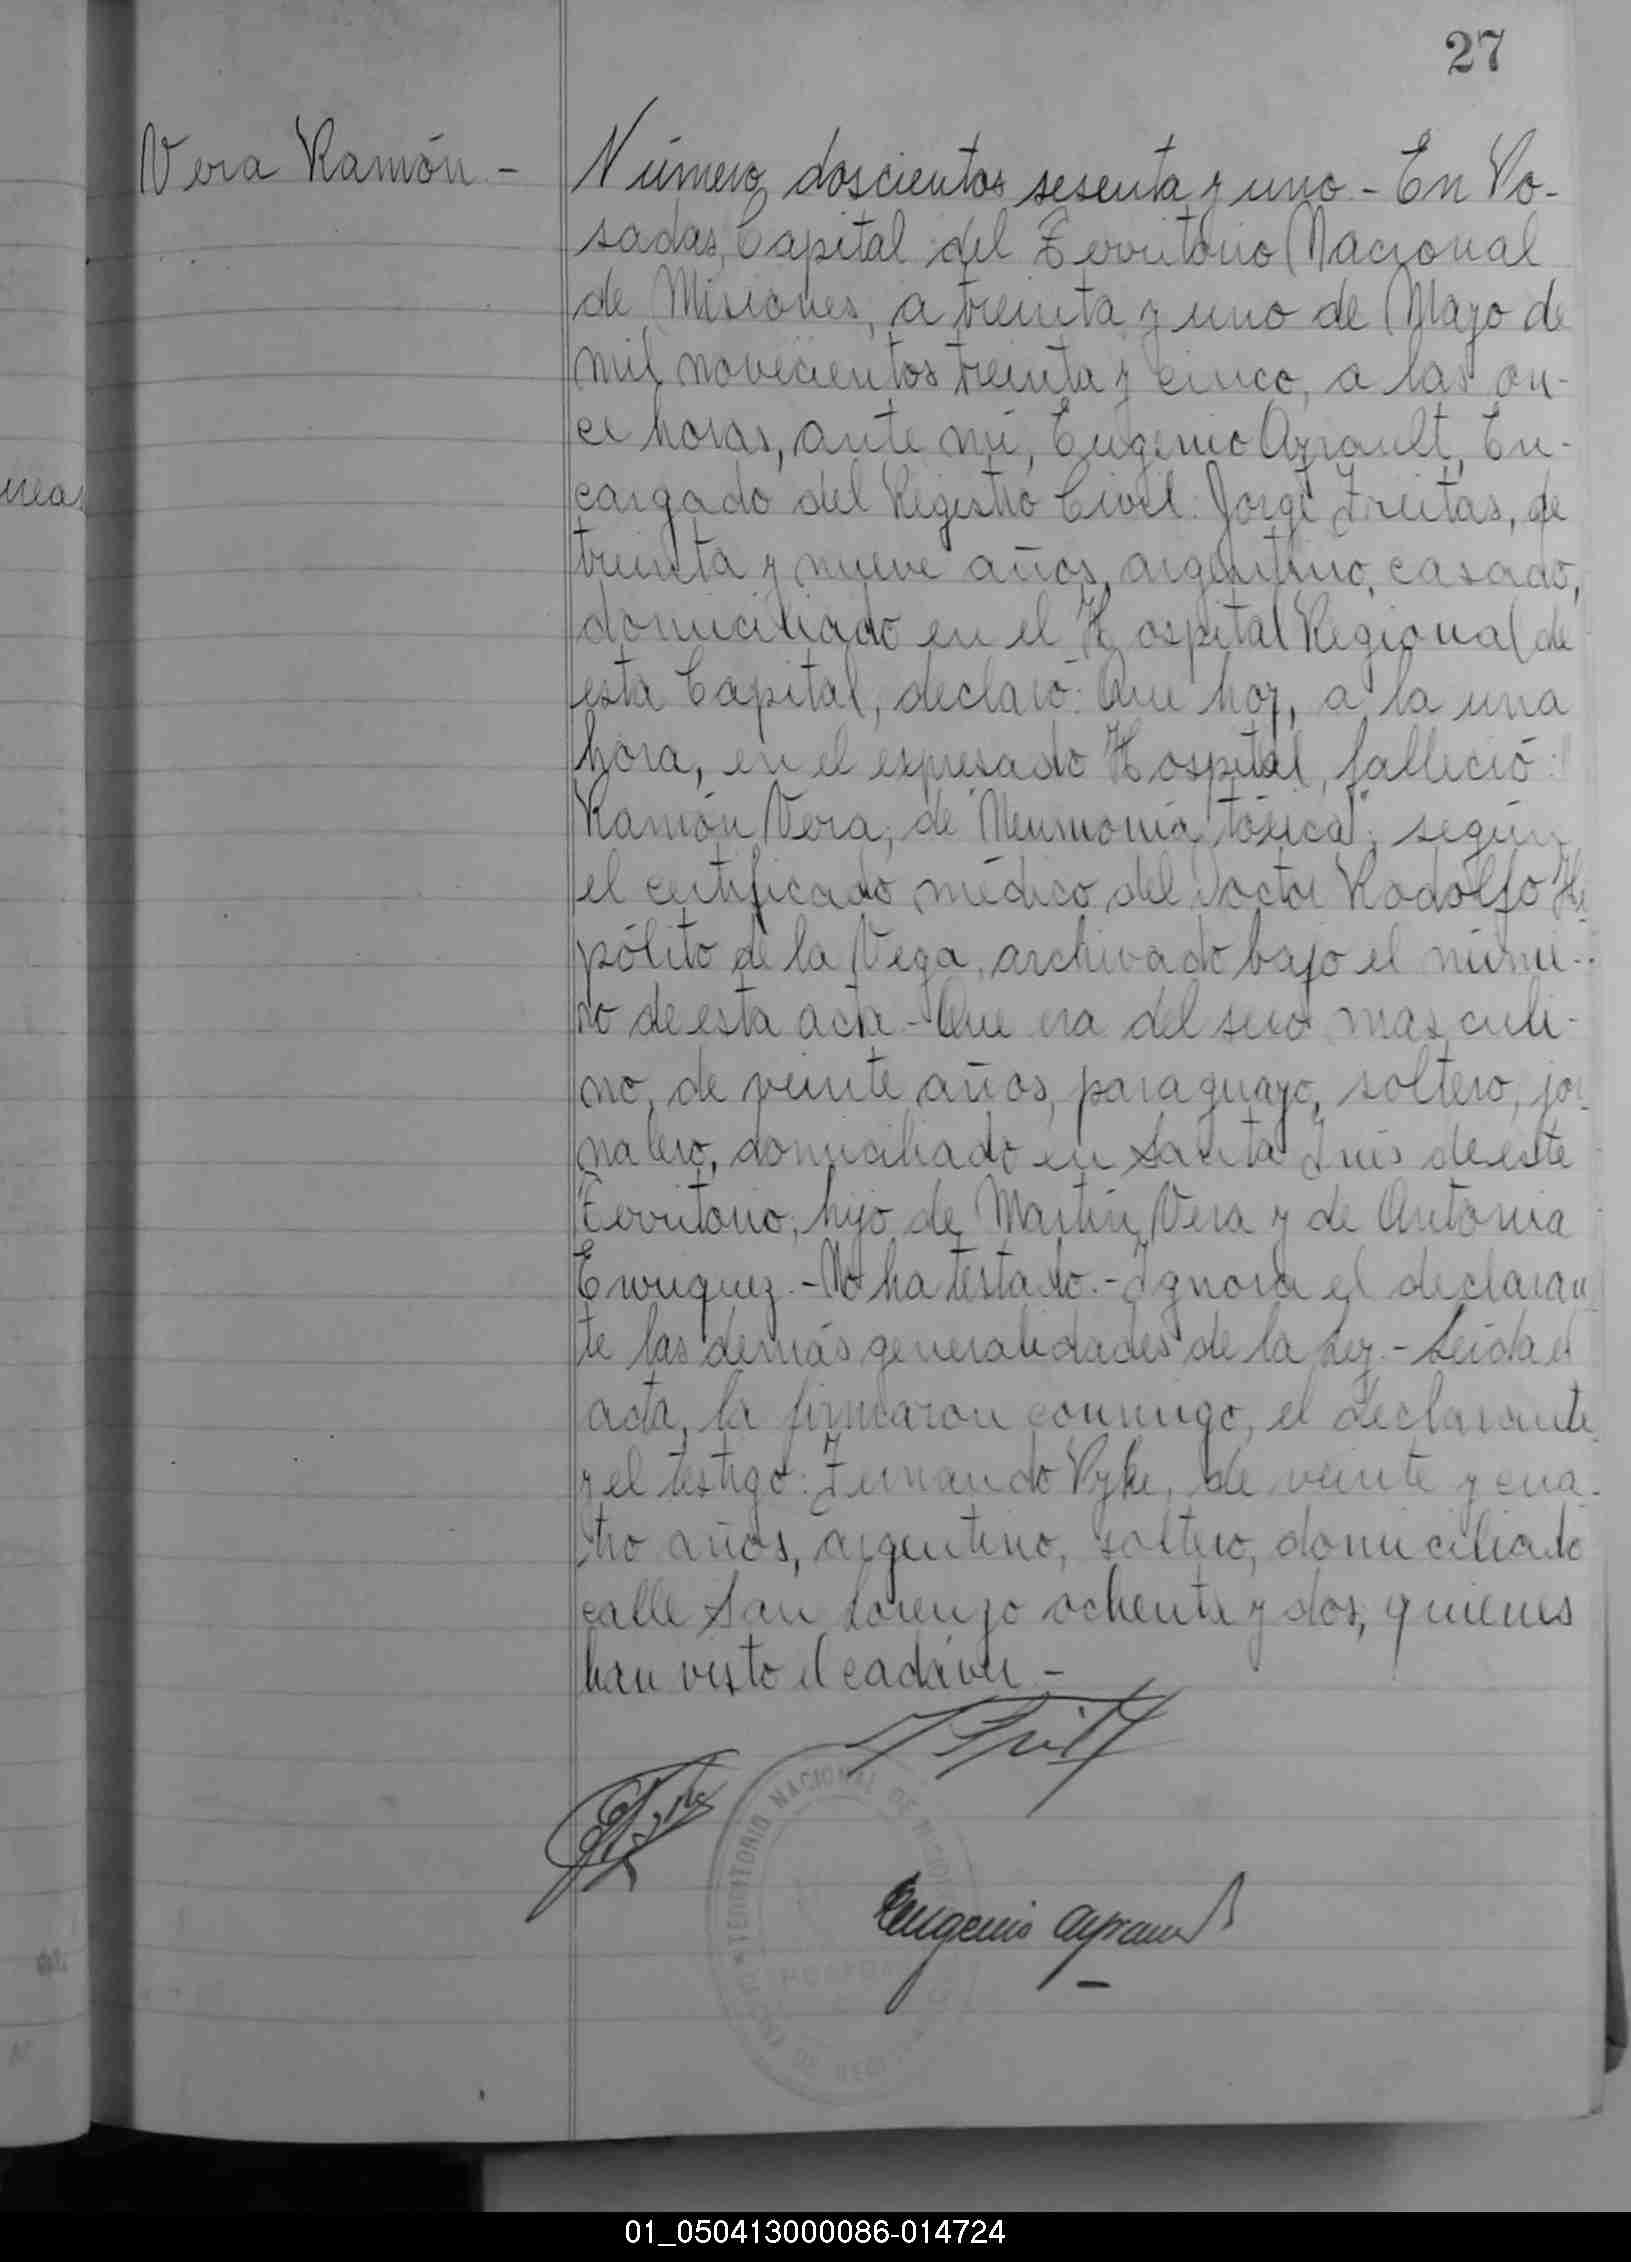 27
Vera Ramón.-
Número doscientos sesenta y uno - En Po-
sadas, Capital del Territorio Nacional
de Misiones, a treinta y uno de Mayo de
mil novecientos treinta y cinco, a las on-
ce horas, ante mí, Eugenio Ayrault, En-
cargado del Registro Civil: Jorge Freitas, de
treinta y nueve años, argentino, casado,
domiciliado en el Hospital Regional de
esta Capital, declaró: Que hoy, a la una
hora, en el expresado Hospital, falleció:
Ramón Vera, de "Neumonía tóxica", según
el certificado médico del Doctor Rodolfo Hi-
pólito de la Vega, archivado bajo el núme-
ro de esta acta - Que era del sexo masculi-
no, de veinte años, paraguayo, soltero, jor-
nalero, domiciliado en Santa Inés de este
Territorio, hijo de Martín Vera y de Antonia
Enriquez. - No ha testado. - Ignora el declaran-
te las demás generalidades de la Ley. - Leída el
acta, la firmaron conmigo, el declarante
y el testigo: Fernando Pyke, de veinte y cua-
tro años, argentino, soltero, domiciliado
calle San Lorenzo ochenta y dos, quienes
han visto el cadáver -
TERRITORIO NACIONAL DE MISIONES
Eugenio Ayrault
01_050413000086-014724